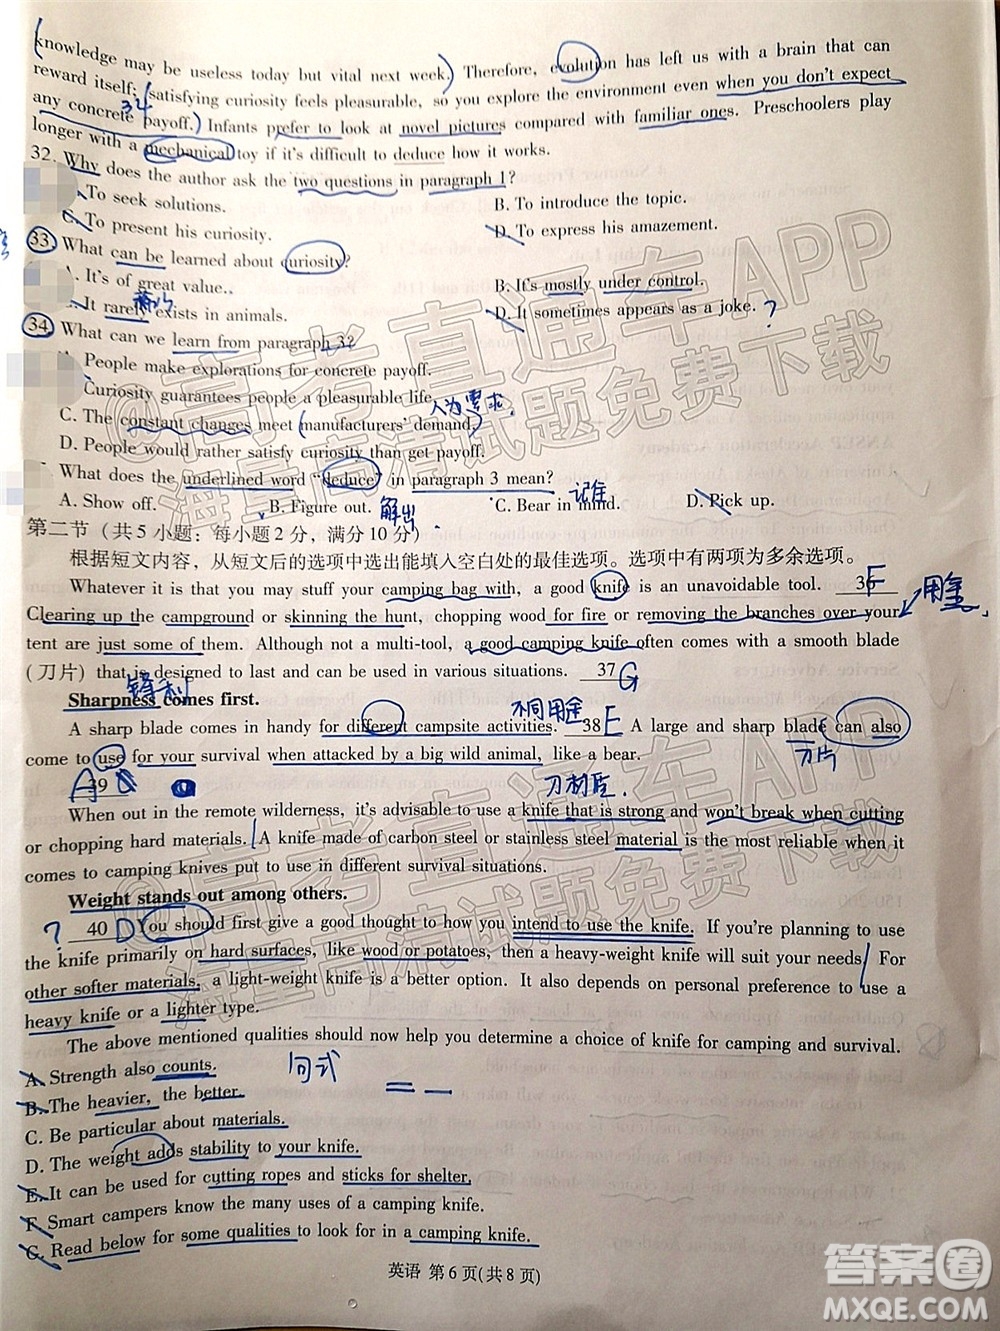 knowledge may be useless today but vital next week. Therefore, evolution has left us with a brain that can
reward itself; satisfying curiosity feels pleasurable, so you explore the environment even when you don't expect
any concrete payoff. Infants prefer to look at novel pictures compared with familiar ones. Preschoolers play
34
longer with a mechanical toy if it's difficult to deduce how it works.
32. Why does the author ask the two questions in paragraph 1?
To seek solutions.
B. To introduce the topic.
C. To present his curiosity.
D. To express his amazement.
33. What can be learned about curiosity?
A. It's of great value.
B. It's mostly under control.
It rarely exists in animals.
D. It sometimes appears as a joke. ?
34. What can we learn from paragraph 3?
People make explorations for concrete payoff.
Curiosity guarantees people a pleasurable life.
人为需求
C. The constant changes meet manufacturers' demand.
D. People would rather satisfy curiosity than get payoff.
What does the underlined word "deduce" in paragraph 3 mean?
A. Show off.
B. Figure out. 解出
C. Bear in mind. 记住
D. Pick up.
第二节 (共 5 小题; 每小题 2 分, 满分 10 分)
根据短文内容, 从短文后的选项中选出能填入空白处的最佳选项。选项中有两项为多余选项。
Whatever it is that you may stuff your camping bag with, a good knife is an unavoidable tool. 36 F
用途
Clearing up the campground or skinning the hunt, chopping wood for fire or removing the branches over your
tent are just some of them. Although not a multi-tool, a good camping knife often comes with a smooth blade
(刀片) that is designed to last and can be used in various situations. 37 G
锋利
Sharpness comes first.
不同用途
A sharp blade comes in handy for different campsite activities. 38 E A large and sharp blade can also
come to use for your survival when attacked by a big wild animal, like a bear.
刀片
39 A
刀材质
When out in the remote wilderness, it's advisable to use a knife that is strong and won't break when cutting
or chopping hard materials. A knife made of carbon steel or stainless steel material is the most reliable when it
comes to camping knives put to use in different survival situations.
Weight stands out among others.
? 40 D You should first give a good thought to how you intend to use the knife. If you're planning to use
the knife primarily on hard surfaces, like wood or potatoes, then a heavy-weight knife will suit your needs. For
other softer materials, a light-weight knife is a better option. It also depends on personal preference to use a
heavy knife or a lighter type.
The above mentioned qualities should now help you determine a choice of knife for camping and survival.
A. Strength also counts.
句式
B. The heavier, the better.
C. Be particular about materials.
D. The weight adds stability to your knife.
E. It can be used for cutting ropes and sticks for shelter.
F. Smart campers know the many uses of a camping knife.
G. Read below for some qualities to look for in a camping knife.
英语 第 6 页(共 8 页)
@高考直通车APP
海量高清试题免费下载
@高考直通车APP
海量高清试题免费下载
答案圈
MXQE.COM